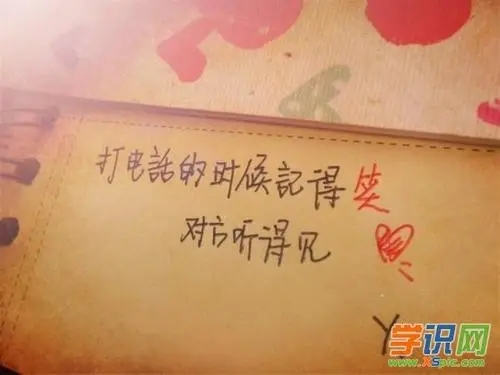 打电話的时候記得笑
对方听得见
Y
学识网
www.XSpic.com